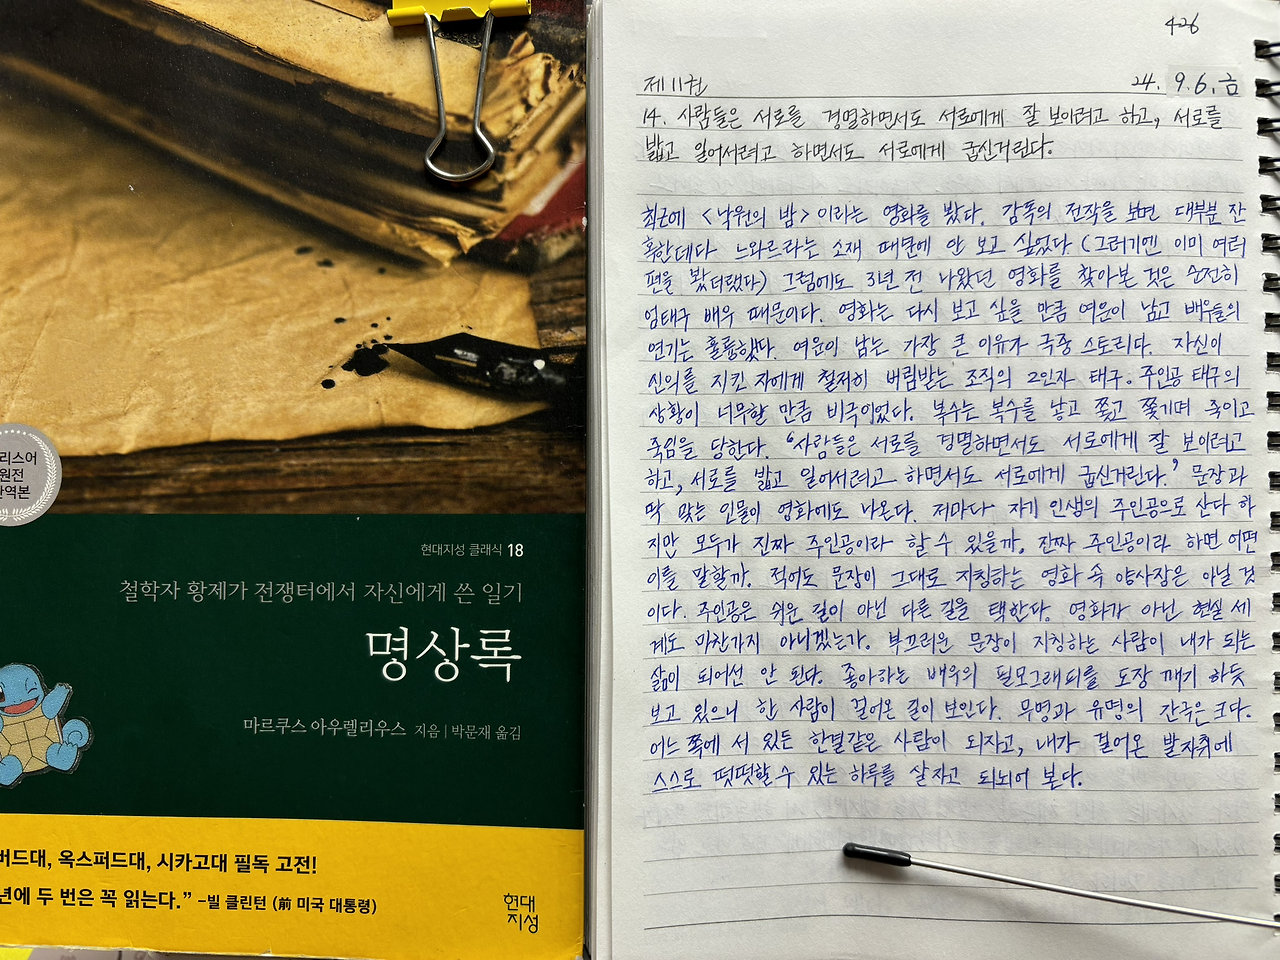 리스어
원전
완역본
현대지성 클래식 18
철학자 황제가 전쟁터에서 자신에게 쓴 일기
명상록
마르쿠스 아우렐리우스 지음 | 박문재 옮김
버드대, 옥스퍼드대, 시카고대 필독 고전!
년에 두 번은 꼭 읽는다.” –빌 클린턴 (前 미국 대통령)
현대
지성
426
제 11권 24. 9. 6. 금
14. 사람들은 서로를 경멸하면서도 서로에게 잘 보이려고 하고, 서로를
밟고 일어서려고 하면서도 서로에게 굽신거린다.
최근에 <낙원의 밤> 이라는 영화를 봤다. 감독의 전작을 보면 대부분 잔
혹한데다 느와르라는 소재 때문에 안 보고 싶었다 (그러기엔 이미 여러
편을 봤더랬다) 그럼에도 3년 전 나왔던 영화를 찾아본 것은 순전히
엄태구 배우 때문이다. 영화는 다시 보고 싶을 만큼 여운이 남고 배우들의
연기는 훌륭했다. 여운이 남는 가장 큰 이유가 극중 스토리다. 자신이
신의를 지킨 자에게 철저히 버림받는 조직의 2인자 태구. 주인공 태구의
상황이 너무할 만큼 비극이었다. 복수는 복수를 낳고 쫓고 쫓기며 죽이고
죽임을 당한다. “사람들은 서로를 경멸하면서도 서로에게 잘 보이려고
하고, 서로를 밟고 일어서려고 하면서도 서로에게 굽신거린다.” 문장과
딱 맞는 인물이 영화에도 나온다. 저마다 자기 인생의 주인공으로 산다 하
지만 모두가 진짜 주인공이라 할 수 있을까. 진짜 주인공이라 하면 어떤
이를 말할까. 적어도 문장이 그대로 지칭하는 영화 속 양사장은 아닐 것
이다. 주인공은 쉬운 길이 아닌 다른 길을 택한다. 영화가 아닌 현실 세
계도 마찬가지 아니겠는가. 부끄러운 문장이 지칭하는 사람이 내가 되는
삶이 되어선 안 된다. 좋아하는 배우의 필모그래피를 도장 깨기 하듯
보고 있으니 한 사람이 걸어온 길이 보인다. 무명과 유명의 간극은 크다.
어느 쪽에 서 있든 한결같은 사람이 되자고, 내가 걸어온 발자취에
스스로 떳떳할 수 있는 하루를 살자고 되뇌어 본다.